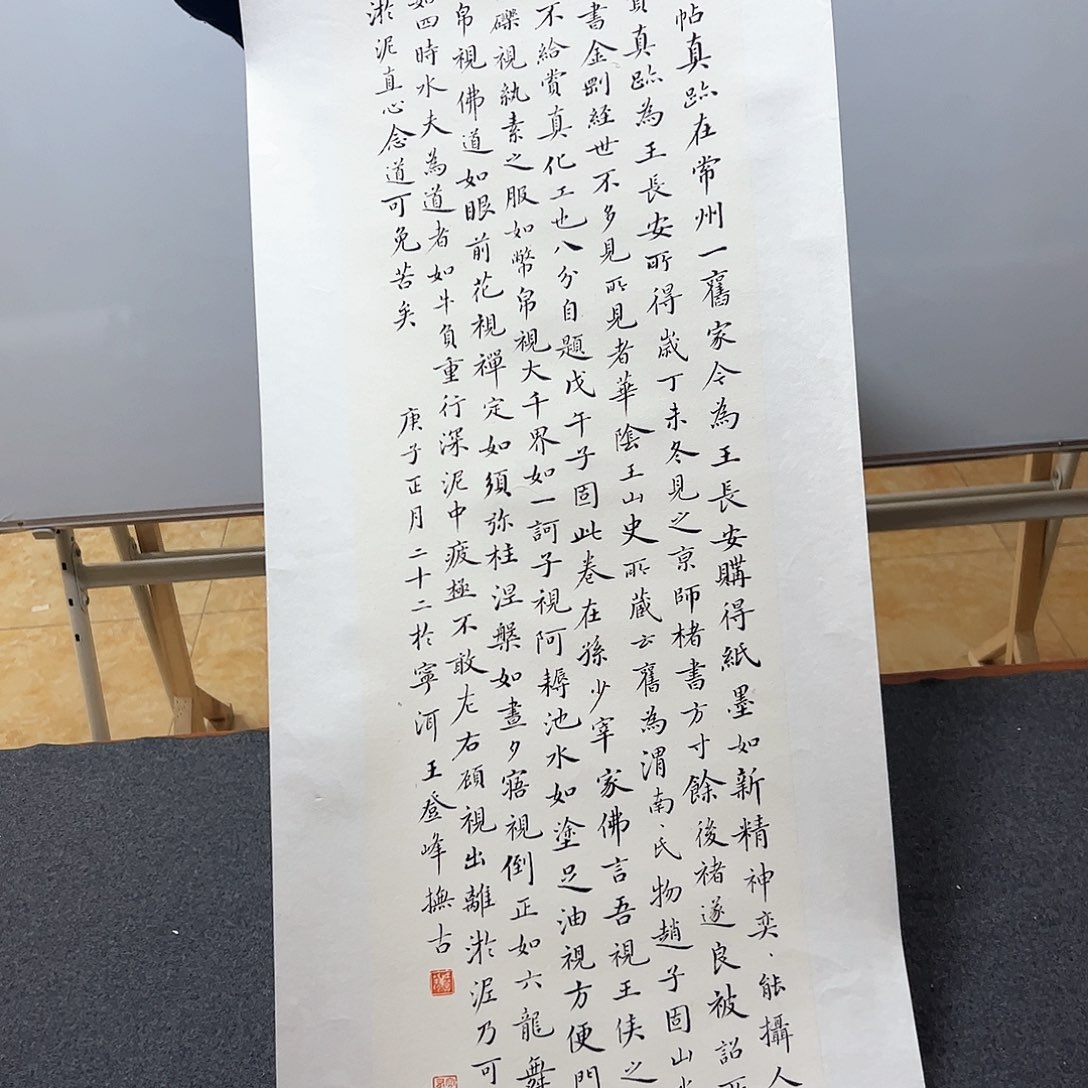 帖真跡在常州一舊家今為王長安購得紙墨如新精神奕、能攝人
真跡為王長安所得歲丁未冬見之京師楮書方寸餘後褚遂良被詔
書金剛經世不多見所見者華陰王山史所藏云舊為渭南、氏物趙子固山水
不給賞真化工也八分自題戊午子固此卷在孫少宰家佛言吾視王侯之
礫視紈素之服如幣帛視大千界如一訶子視阿耨池水如塗足油視方便門
帛視佛道如眼前花視禪定如須弥柱涅槃如晝夕寤視倒正如六龍舞
如四時水夫為道者如牛負重行深泥中疲極不敢左右顧視出離淤泥乃可
淤泥直心念道可免苦矣
庚子正月二十二於寧河王登峰撫古